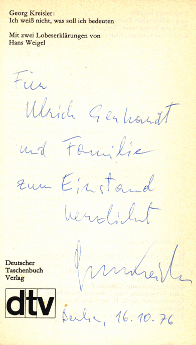 Georg Kreisler:
Ich weiß nicht, was soll ich bedeuten
Mit zwei Lobeserklärungen von
Hans Weigel
Für
Ulrich Gerhardt
und Familie
zum Einstand
herzlichst
Deutscher
Taschenbuch
Verlag
dtv
Berlin, 16.10.76